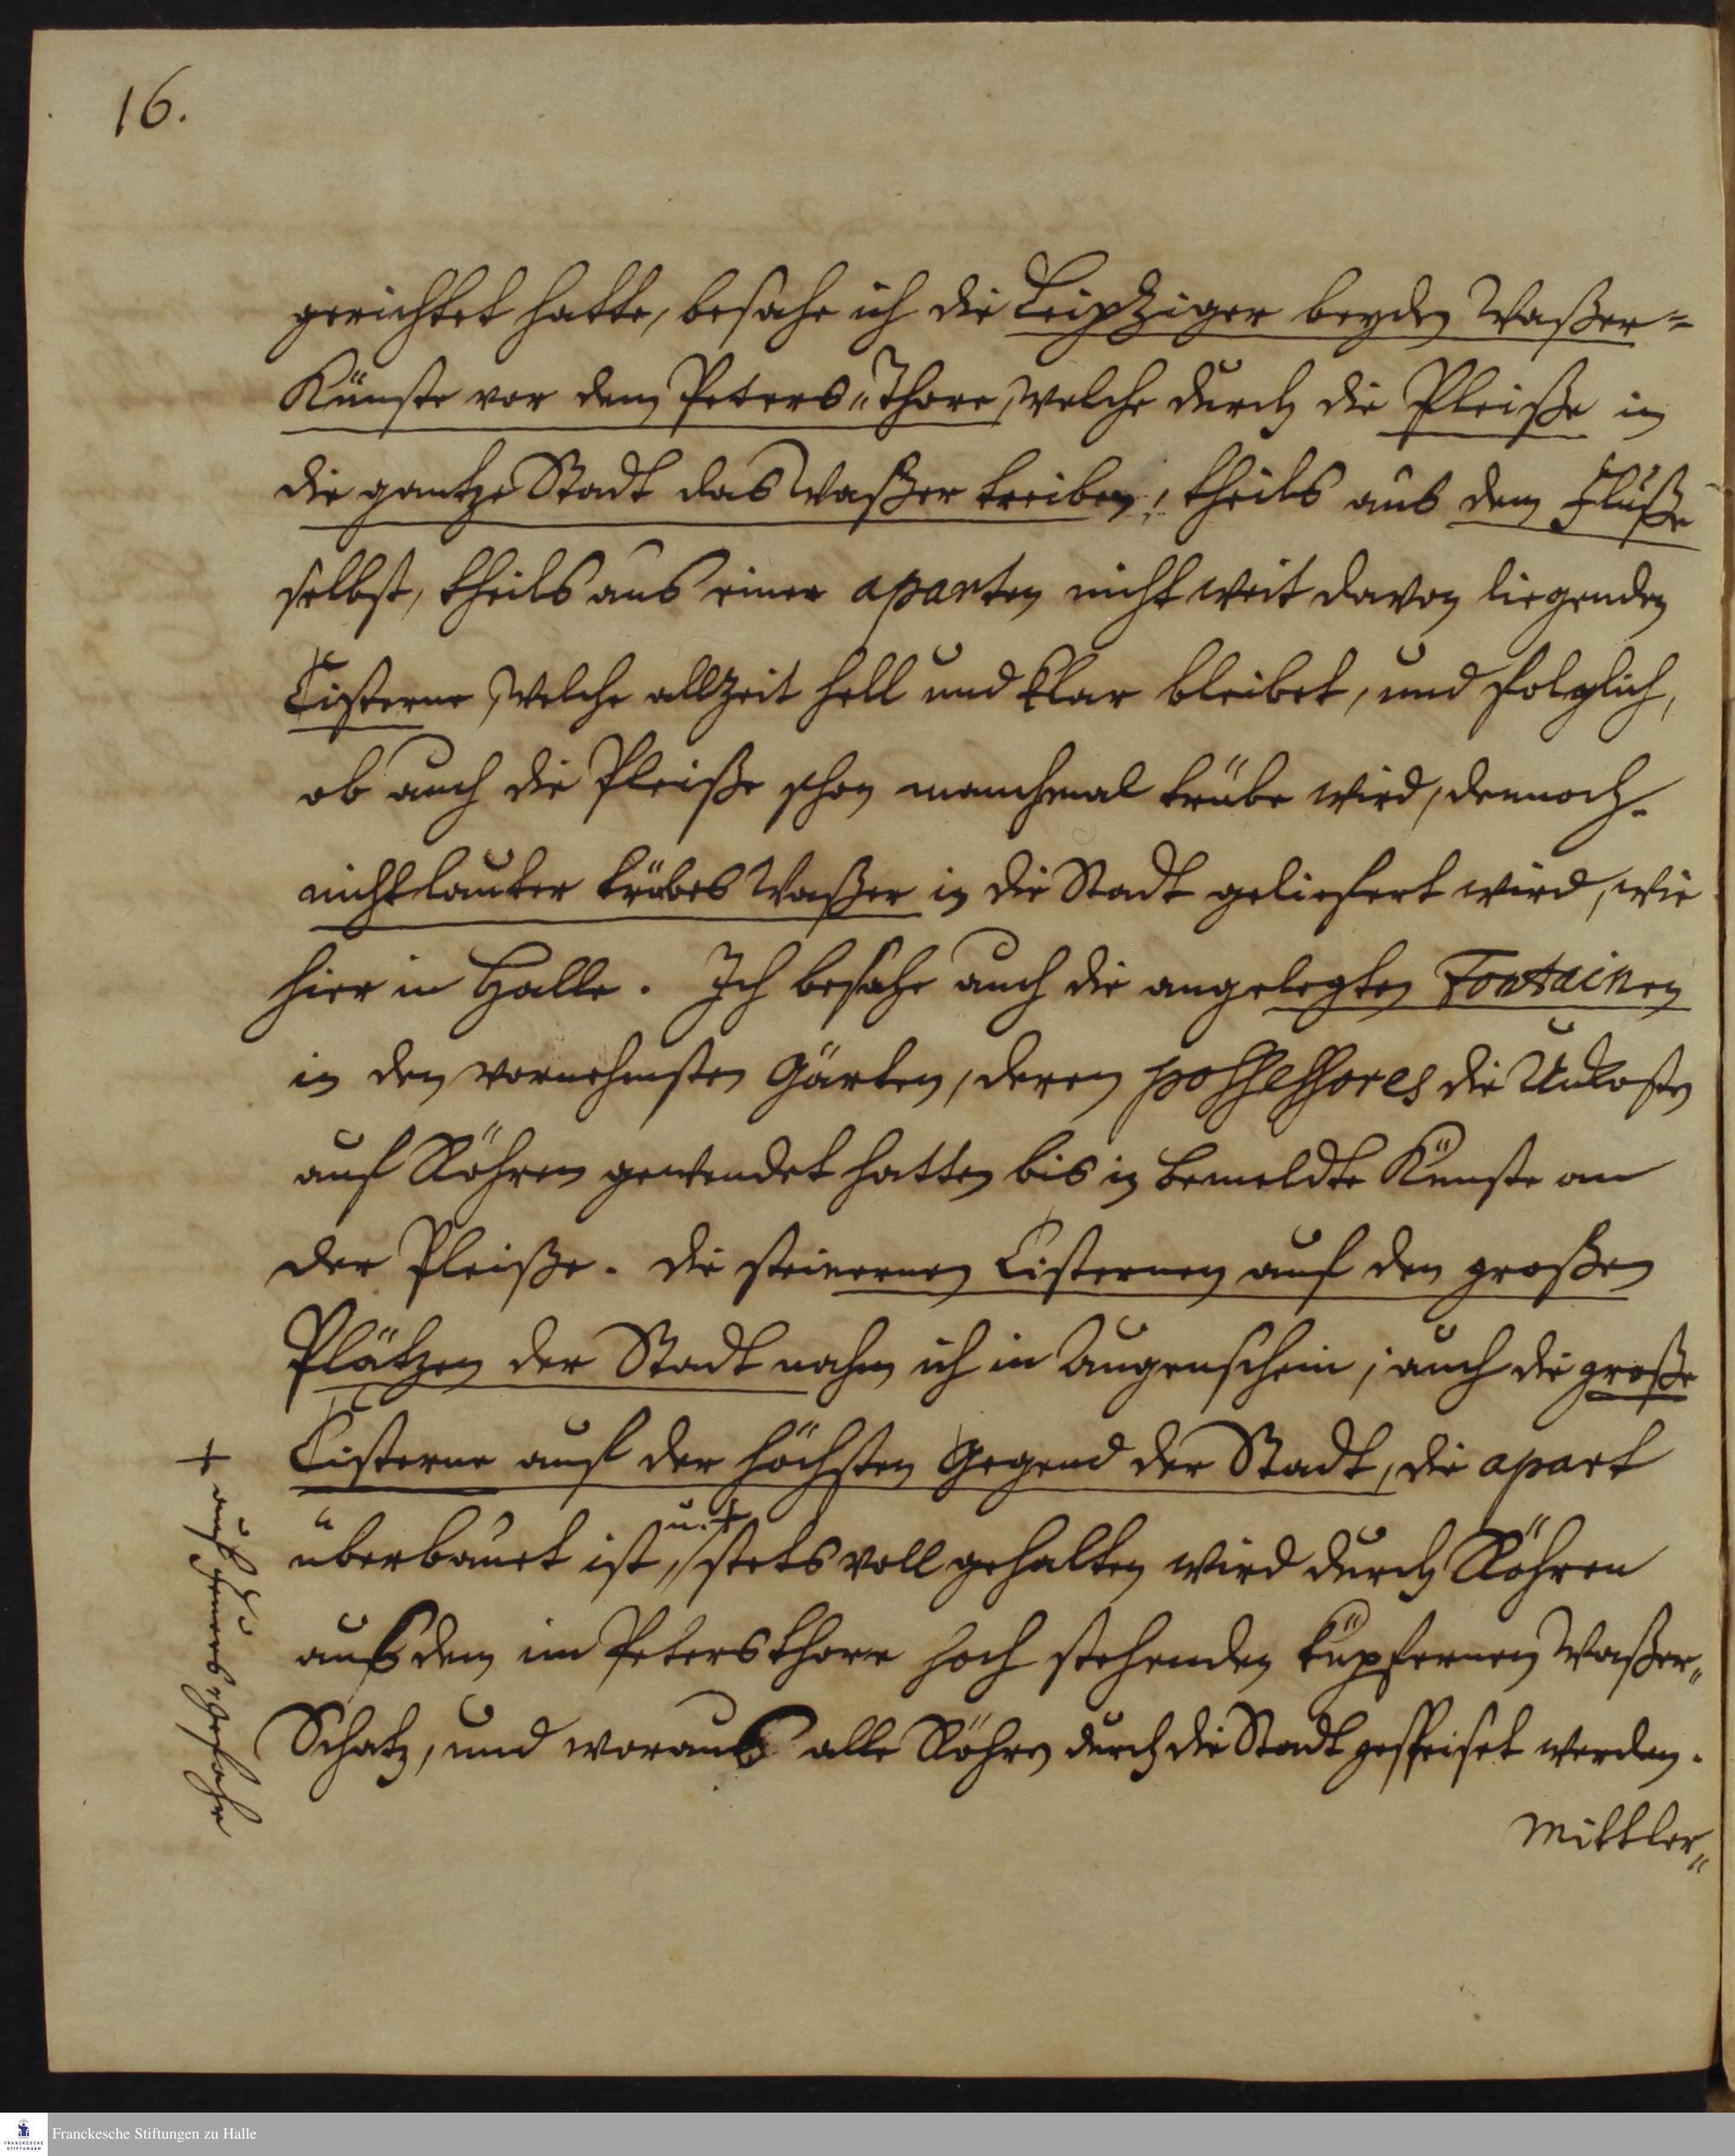 16.
gerichtet hatte, besahe ich die Leipziger beyden Waßer=
Künste vor dem Peters=Thore, welche durch die Pleiße in
die gantze Stadt das Waßer treiben, theils aus dem Fluße
selbst, theils aus einer aparten nicht weit davon liegenden
Cisterne, welche allzeit hell und klar bleibet, und folglich,
ob auch die Pleiße schon manchmal trübe wird, dennoch
nicht lauter trübes Waßer in die Stadt geliefert wird, wie
hier in Halle. Ich besahe auch die angelegten Fontainen
in den vornehmsten Gärten, deren possessores die Unkosten
auf Röhren gewendet hatten bis in bemeldte Künste an
der Pleiße. Die steinernen Cisternen auf den großen
Plätzen der Stadt nahm ich in Augenschein; auch die große
Cisterne auf der höchsten Gegend der Stadt, die apart
überbauet ist, u. + stets voll gehalten wird durch Röhren
aus dem im Petersthore hoch stehenden kupfernen Waßer=
Schatz, und woraus alle Röhren durch die Stadt gespeiset werden.
+ auf Feuers=Gefahr
Mittler=
Franckesche Stiftungen zu Halle
FRANCKESCHE
STIFTUNGEN